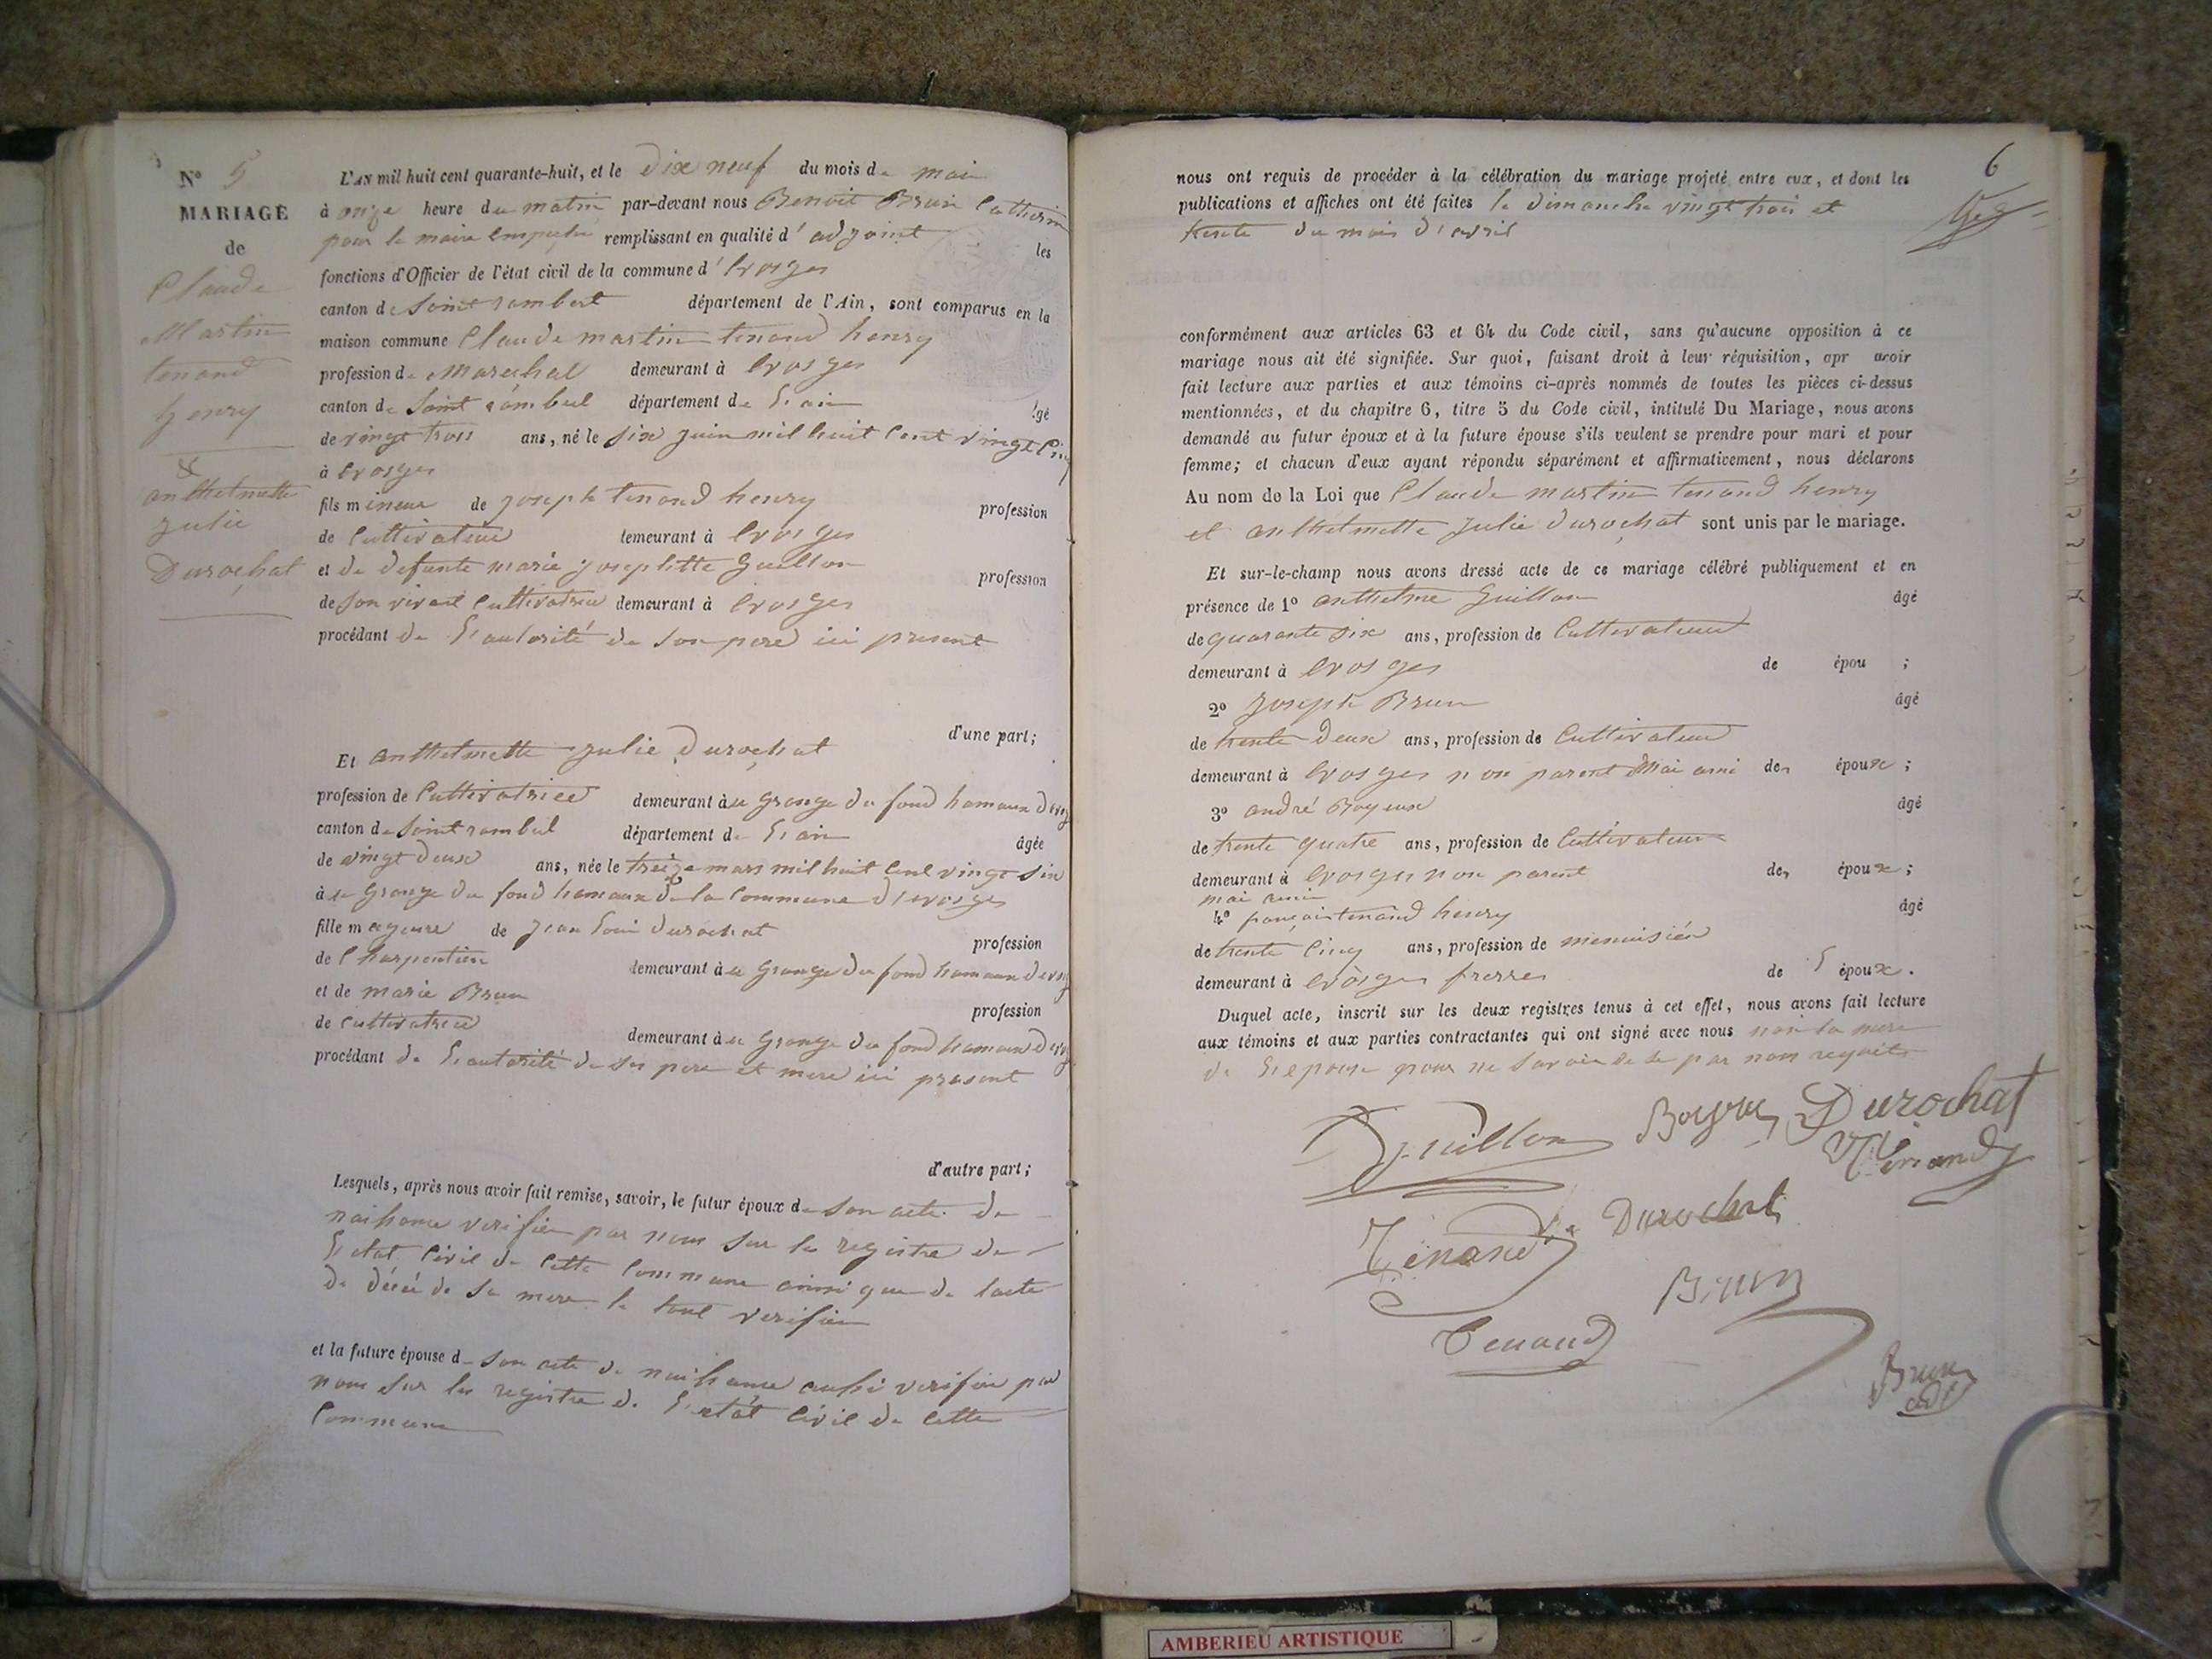 N° 5
MARIAGE
de
Claude
Martin
tenand
henry
&
anthelmette
julie
Durochat
L'AN mil huit cent quarante-huit, et le Dix neuf du mois de mai
à onze heure du matin par-devant nous Benoit Brun
pour le maire empeche remplissant en qualité d'adjoint les
fonctions d'Officier de l'état civil de la commune d'Evosges
canton de Saint rambert département de l'Ain, sont comparus en la
maison commune Claude martin tenand henry
profession de Marechal demeurant à Evosges
canton de Saint rambert département de l'ain âgé
de vingt trois ans, né le six juin mil huit cent vingt cinq
à Evosges
fils mineur de joseph tenand henry profession
de Cultivateur demeurant à Evosges
et de defunte marie josephtte Guillon profession
de son vivant Cultivatrice demeurant à Evosges
procédant de l'autorité de son pere ici present
d'une part;
Et anthelmette julie Durochat
profession de Cultivatrice demeurant à la Grange du fond hamaux d'evosges
canton de Saint rambert département de l'ain âgée
de vingt deux ans, née le treize mars mil huit cent vingt six
à la Grange du fond hamaux de la Commune d'evosges
fille majeure de jean Louis Durochat profession
de Charpentier demeurant à la Grange du fond hamaux d'evosges
et de marie Brun profession
de Cultivatrice demeurant à la Grange du fond hamaux d'evosges
procédant de l'autorité de ses pere et mere ici present
d'autre part;
Lesquels, après nous avoir fait remise, savoir, le futur époux de son acte de
naissance verifier par nous sur les registre de
l'etat Civil de cette Commune ainsi que de lacte
de décé de sa mere le tout verifier
et la future épouse de son acte de naissance aussi verifier par
nous sur les registre de l'etat Civil de cette
Commune
6
nous ont requis de procéder à la célébration du mariage projeté entre eux, et dont les
publications et affiches ont été faites le dimanche vingt trois et
trente du mois d'avril
conformément aux articles 63 et 64 du Code civil, sans qu'aucune opposition à ce
mariage nous ait été signifiée. Sur quoi, faisant droit à leur réquisition, apr avoir
fait lecture aux parties et aux témoins ci-après nommés de toutes les pièces ci-dessus
mentionnées, et du chapitre 6, titre 5 du Code civil, intitulé Du Mariage, nous avons
demandé au futur époux et à la future épouse s'ils veulent se prendre pour mari et pour
femme; et chacun d'eux ayant répondu séparément et affirmativement, nous déclarons
Au nom de la Loi que Claude martin tenand henry
et anthelmette julie durochat sont unis par le mariage.
Et sur-le-champ nous avons dressé acte de ce mariage célébré publiquement et en
présence de 1° anthelme Guillon âgé
de quarante six ans, profession de Cultivateur
demeurant à Evosges de épou ;
2° joseph Brun âgé
de trente deux ans, profession de Cultivateur
demeurant à Evosges non parent mai ami des époux ;
3° andré Boyeux âgé
de trente quatre ans, profession de Cultivateur
demeurant à Evosges non parent des époux ;
mai ami
4° françois tenand henry âgé
de trente cinq ans, profession de menuisier
demeurant à Evosges frerre de l'époux.
Duquel acte, inscrit sur les deux registres tenus à cet effet, nous avons fait lecture
aux témoins et aux parties contractantes qui ont signé avec nous non la mere
de l'epouse pour ne savoir de ce par nom requit
Guillon Boyeux Durochat
Tenand
Tenand Durochat
Brun
Tenand
Brun
adj
AMBERIEU ARTISTIQUE